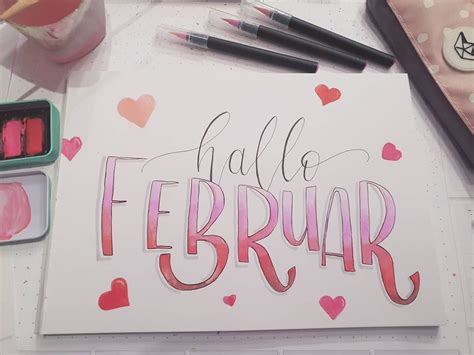 hallo
FEBRUAR